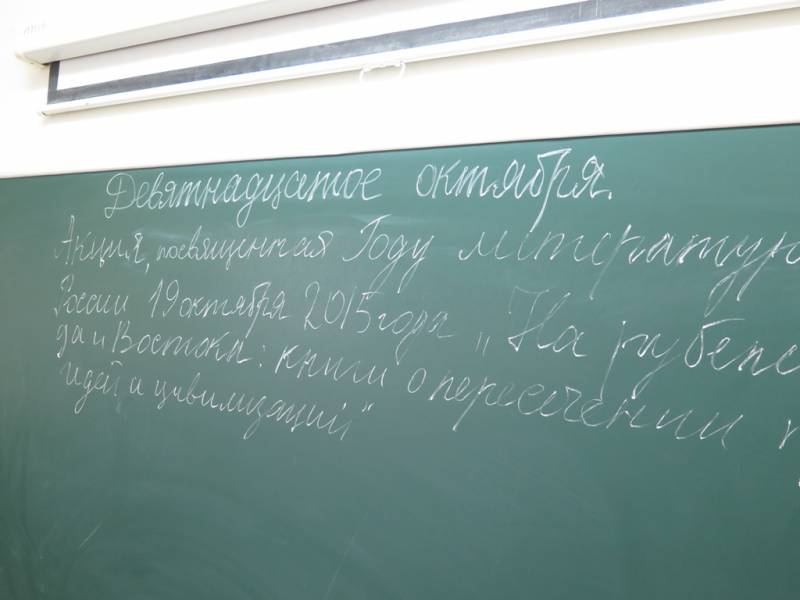 Девятнадцатое октября.
Акция, посвященная Году литератур
России 19 октября 2015 года „На рубеж
да и Востока: книги о пересечении
идей и цивилизаций“